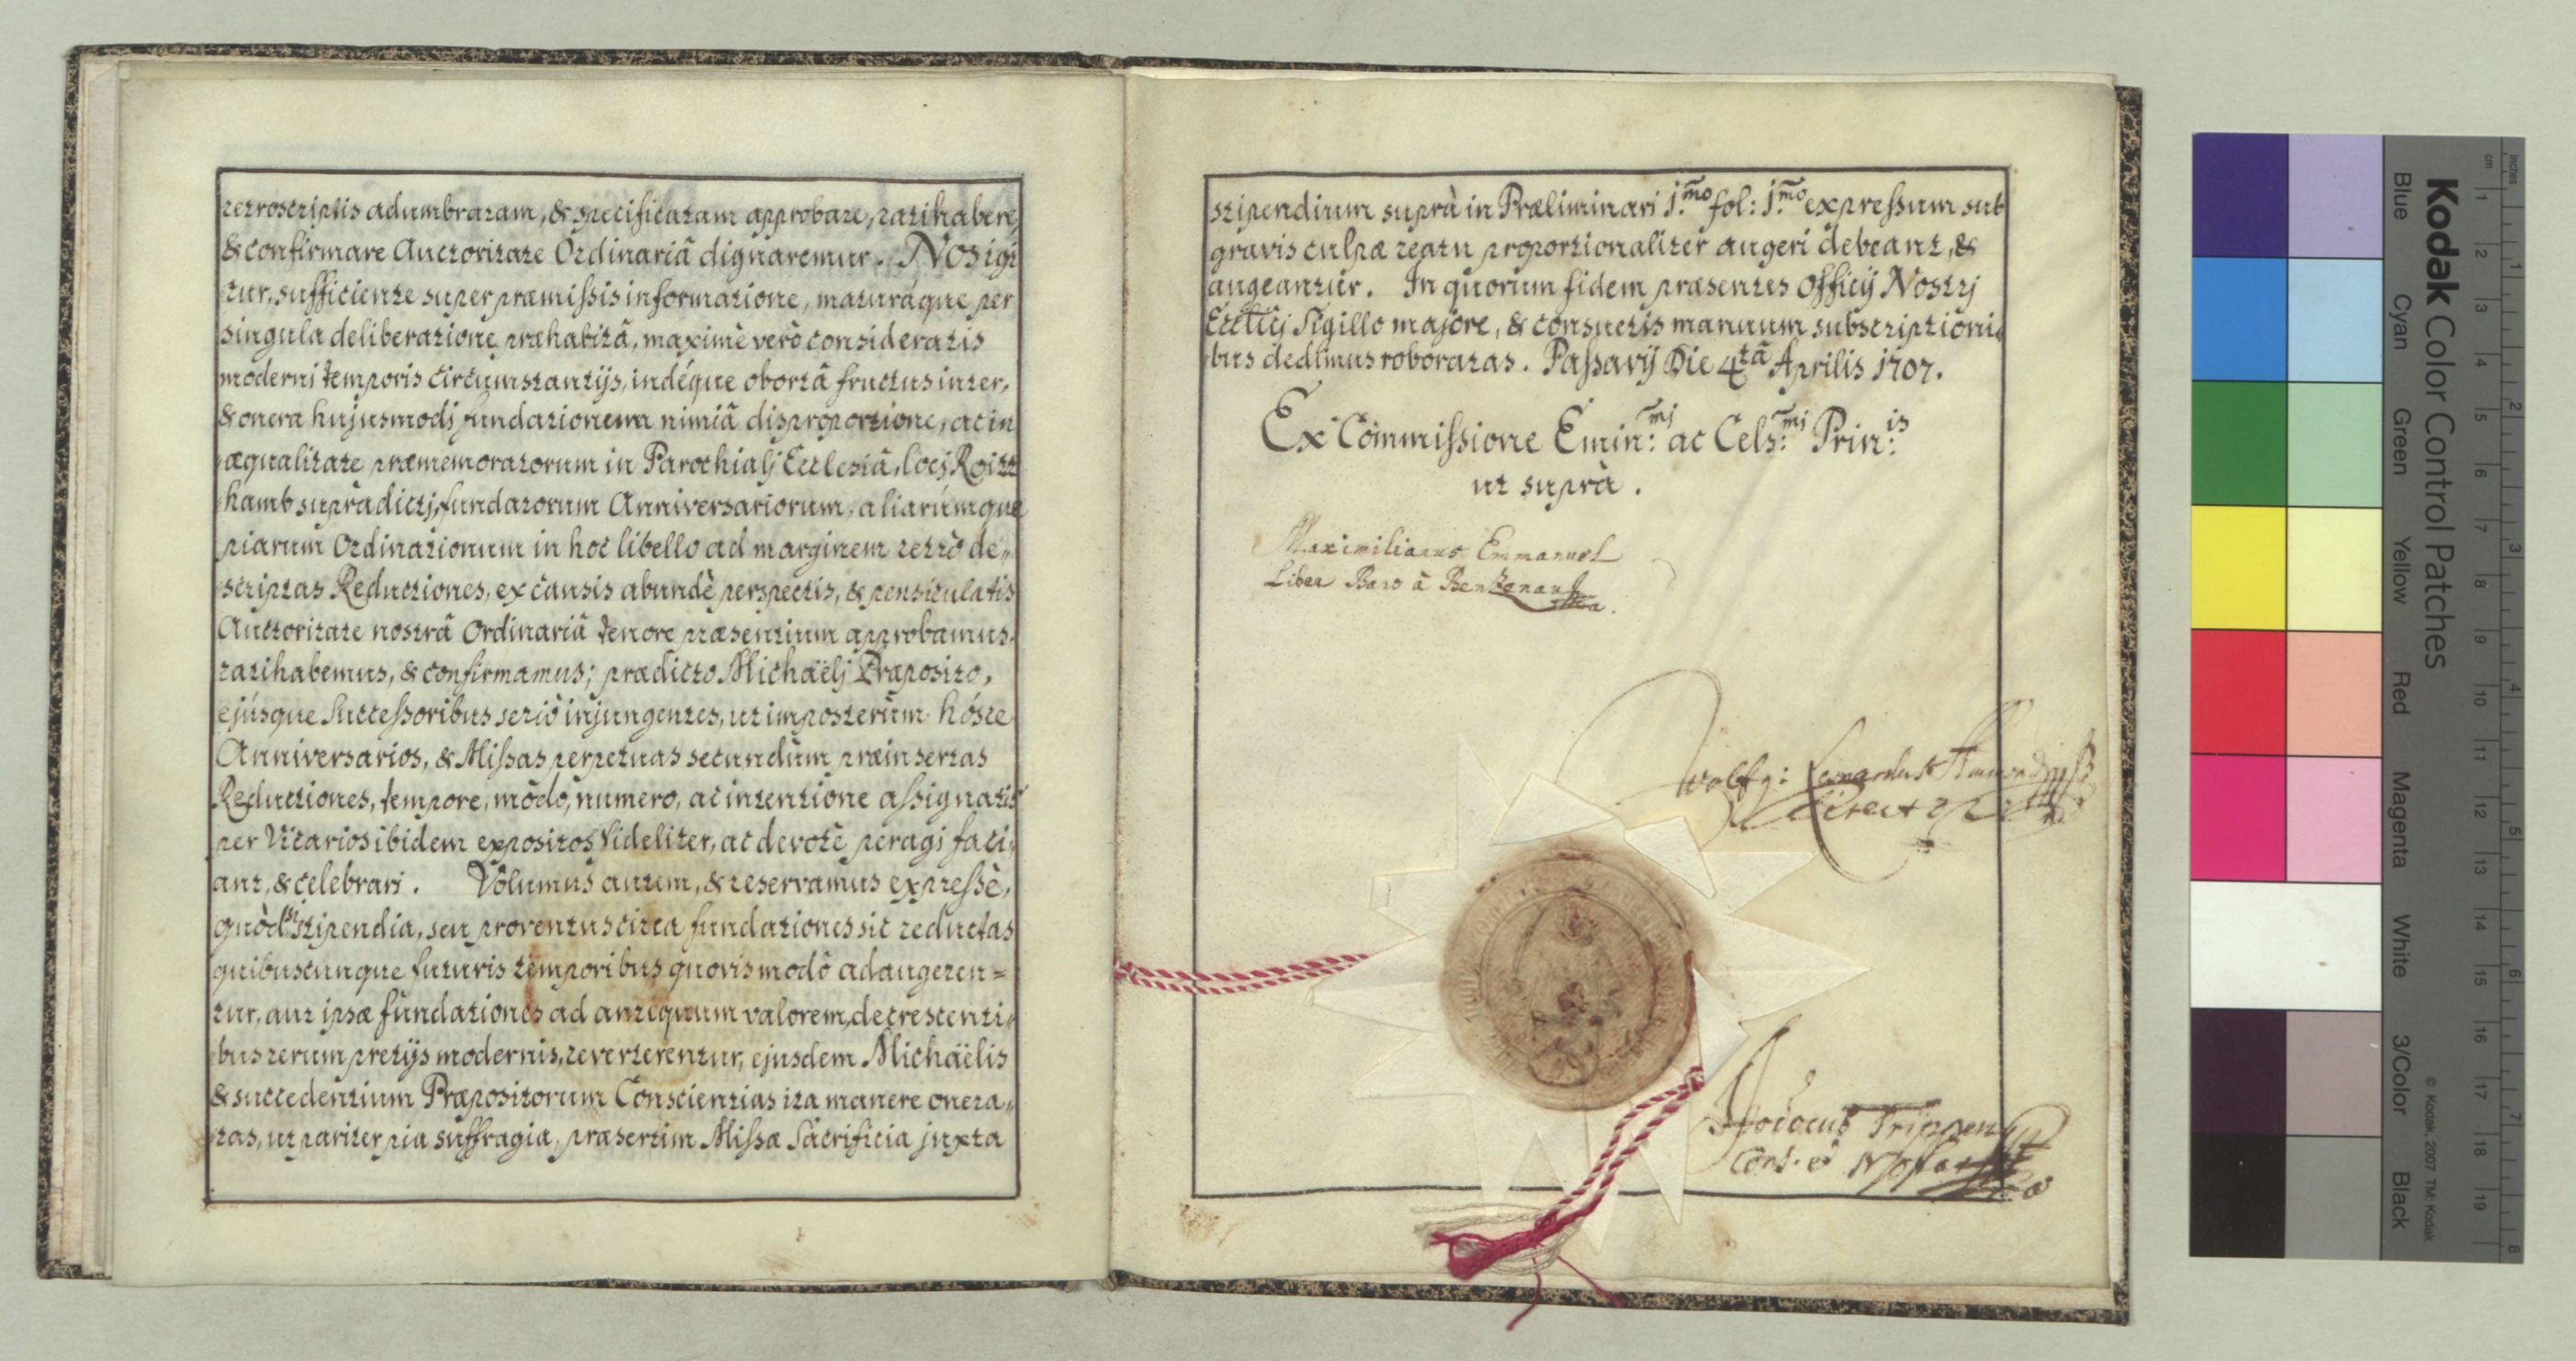 retroscriptis adumbratam, & specificatam approbare, ratihabere,
& confirmare Auctoritate Ordinariâ dignaremur. Nos igi
tur, sufficiente super præmißis informatione, maturáque per
singula deliberatione præhabitâ, maximè verò consideratis
moderni temporis circumstantijs, indéque obortâ fructus inter,
& onera hujusmodj fundationum nimiâ disproportione, ac in
æqualitate præmemoratorum in Parochialj Ecclesiâ, locj Roitt
hamb supràdictj, fundatorum Anniversariorum, aliarúmque
piarum Ordinationum in hoc libello ad marginem retrò de„
scriptas Reductiones, ex causis abundè perspectis, & pensiculatis
Auctoritate nostrâ Ordinariâ tenore præsentium approbamus,
ratihabemus, & confirmamus; prædicto Michaëlj Præposito,
ejúsque Succeßoribus seriò injungentes, ut imposterùm hósce
Anniversarios, & Mißas perpetuas secundùm præinsertas
Reductiones, tempore, modo, numero, ac intentione aßignatis
per Vicarios ibidem expositos fideliter, ac devotè peragi faci„
ant, & celebrari. Volumus autem, & reservamus expreßè,
quòd si stipendia, seu proventus circa fundationes sic reductas
quibuscunque futuris temporibus quovis modô adaugeren=
tur, aut ipsæ fundationes ad antiquum valorem, decrescenti„
bus rerum pretijs modernis, reverterentur, ejusdem Michaëlis
& succedentium Præpositorum Conscientias ita manere onera„
tas, ut pariter pia suffragia, præsertim Mißæ Sacrificia juxta
stipendium suprà in Præliminari j.mo fol: j.mo expreßum sub
gravis culpæ reatu proportionaliter augeri debeant, &
augeantur. In quorum fidem præsentes Officij Nostrj
Ecclticj Sigillo majore, & consuetis manuum subscriptioni„
bus dedimus roboratas. Paßavij Die 4tâ Aprilis 1707.
Ex Commißione Emin:mj ac Cels:mj Prin:is
ut suprà.
Maximilianus Emmanuel
Liber Baro à Benzenau
Wolfg: Leonardus
Direct
Jodocus Trippen
Cons. et
Kodak Color Control Patches
Blue Cyan Green Yellow Red Magenta White 3/Color Black
© Kodak, 2007 TM: Kodak
inches 1 2 3 4 5 6 7 8
cm 1 2 3 4 5 6 7 8 9 10 11 12 13 14 15 16 17 18 19